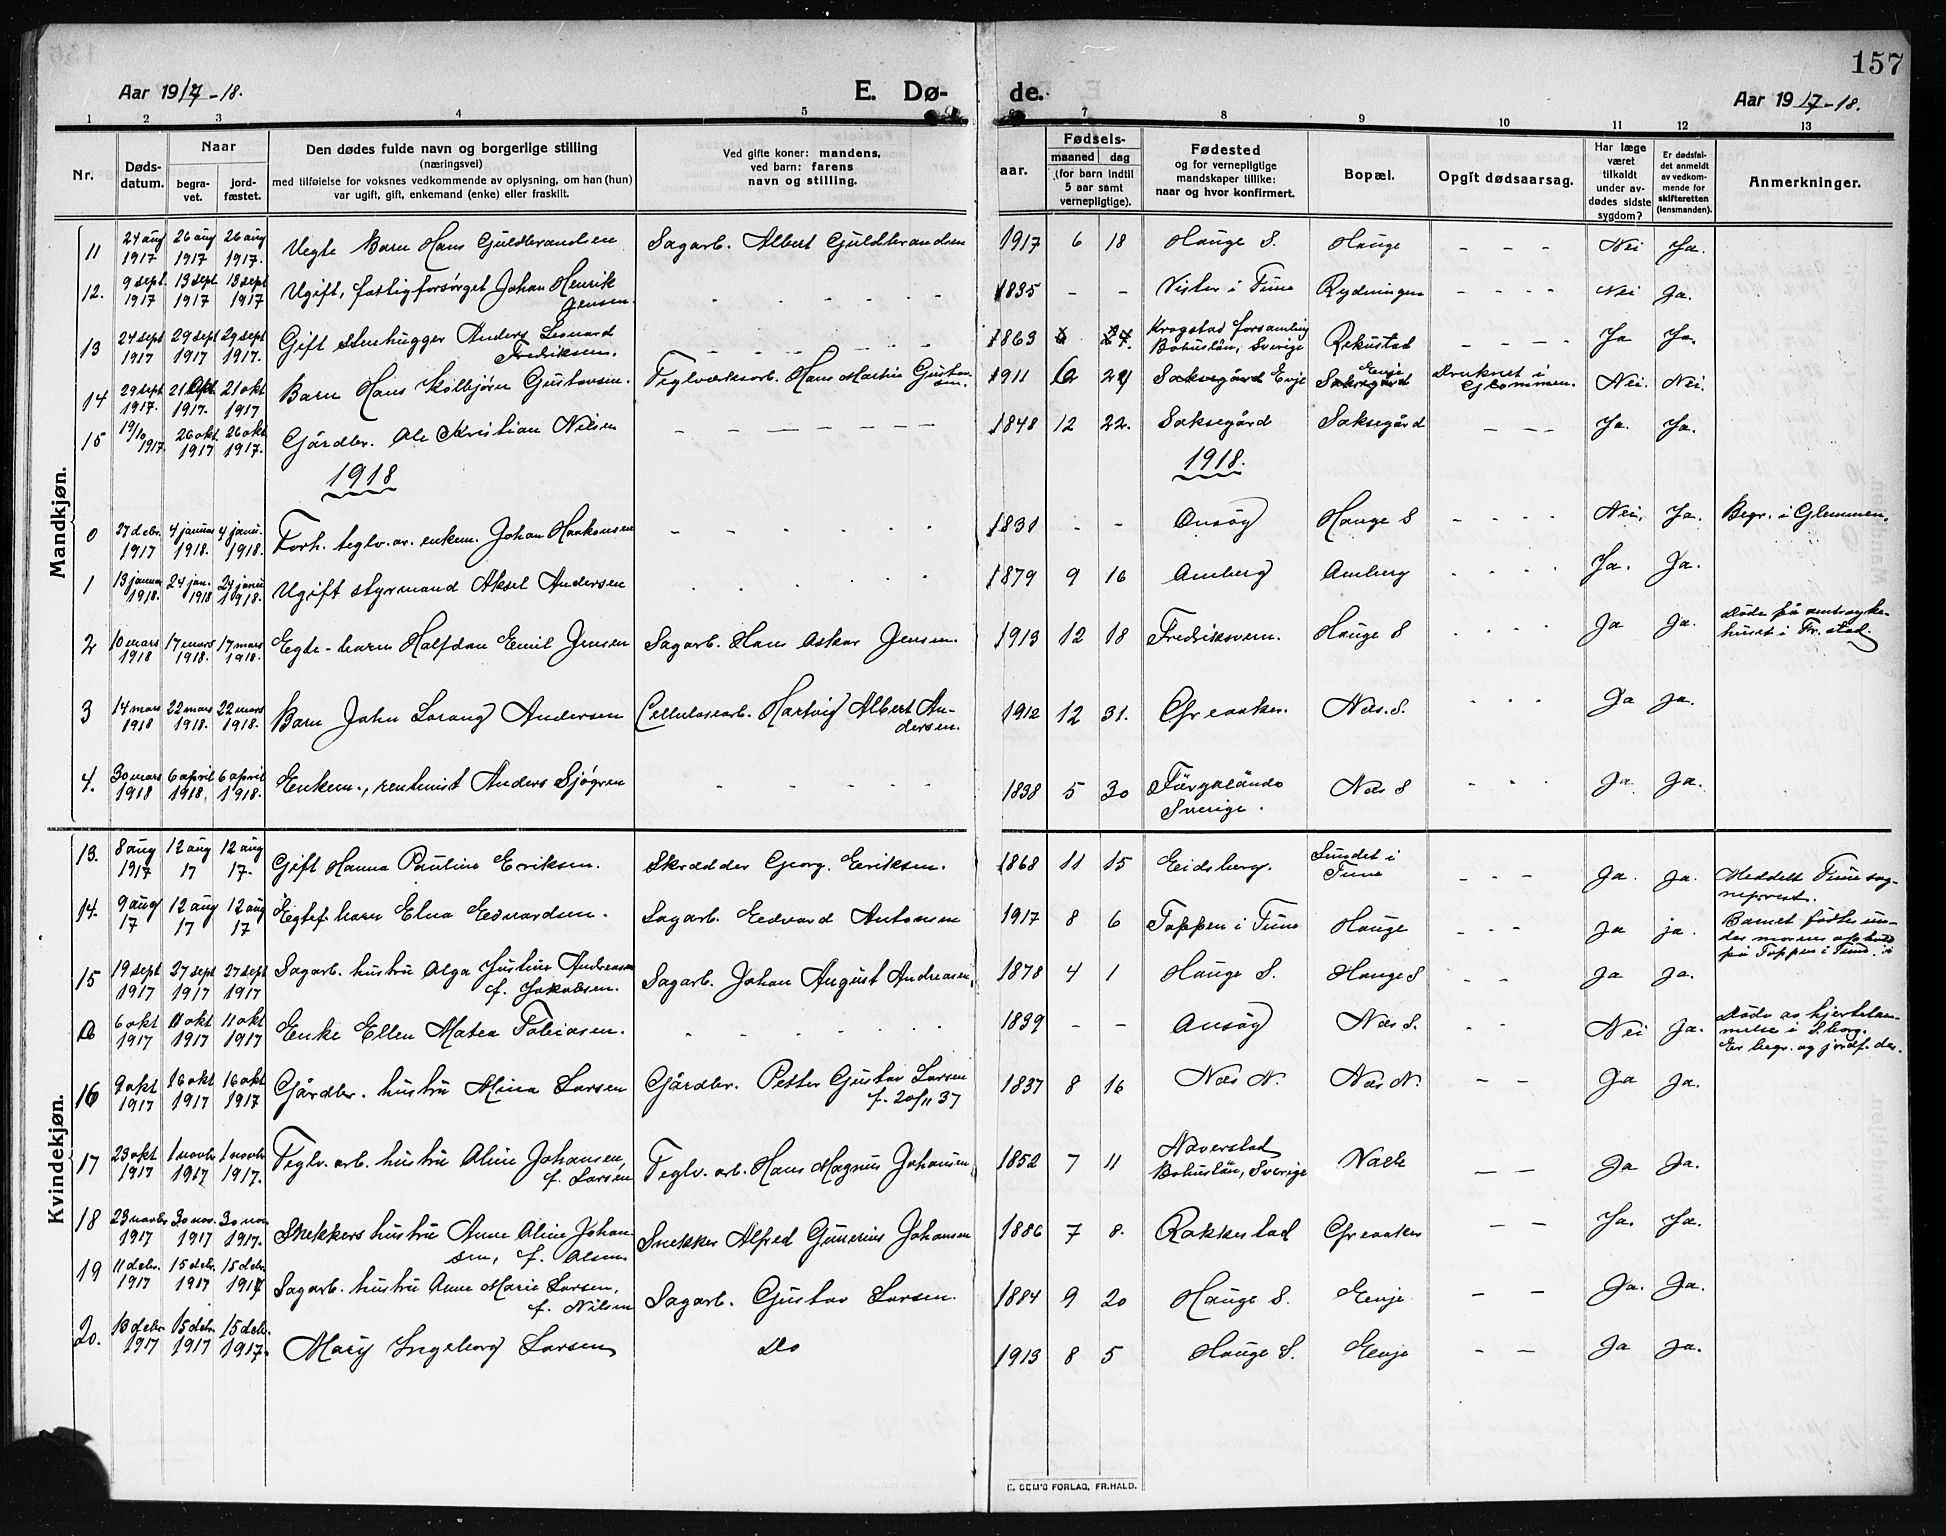 157
Aar 1917-18. E. Dø- de. Aar 1917-18.
1 2 3 4 5 7 8 9 10 11 12 13
Nr. Døds-datum. Naar begra-vet. jord-fæstet. Den dødes fulde navn og borgerlige stilling (næringsvei) med tilføielse for voksnes vedkommende av oplysning, om han (hun) var ugift, gift, enkemand (enke) eller fraskilt. Ved gifte koner: mandens, ved barn: farens navn og stilling. Fødsels- aar. maaned dag (for barn indtil 5 aar samt vernepligtige). Fødested og for vernepligtige mandskaper tillike: naar og hvor konfirmert. Bopæl. Opgit dødsaarsag. Har læge været tilkaldt under av-dødes sidste sygdom? Er dødsfal-det anmeldt av vedkom-mende for skifteretten (lensmanden). Anmerkninger.
Mandkjøn.
11 24 aug 1917 26 aug 1917 26 aug 1917. Uegte Barn Hans Guldbrandsen Sagarb. Albert Guldbrandsen 1917 6 18 Hauge S. Hauge - - - Nei Ja.
12. 9 sept 1917 13 sept 1917 13 sept 1917 Ugift, fattigforsørget Johan Henrik Jensen. 1835 - - Vister i Tune Rydningen - - - - Nei Ja.
13 24 sept 1917 29 sept 1917 29 sept 1917. Gift stenhugger Anders Leonard Fredriksen. 1863 Krogstad forsamling Bohuslän, Sverige Rekustad - - - - Ja Ja.
14 29 sept 1917. 21 okt 1917. 21 okt 1917 Barn Hans Kolbjørn Gustavsen. Teglværksarb. Hans Martin Gustav-sen. 1911 24 Saksegård Evje Evje Saksegård Druknet i Glommen. Nei. Nei.
15 19/10 1917. 26 okt 1917 26 okt 1917. Gårdbr. Ole Kristian Nilsen - - - - - - - 1848 12 22. Saksegård Saksegård - - - - Ja. Ja.
1918 1918.
0 27 debr. 1917 4 januar 1918. 4 janu. 1918. Forh. teglv. ar. enkem. Johan Haakonsen - - 1831 - - Onsøy Hauge S - - - - Nei, Ja. Begr. i Glemmen.
1 13 januar 1918. 24 jan. 1918 24 janu 1918. Ugift styrmand Aksel Andersen 1879 9 16 Amberg Amberg - - - - Ja. Ja.
2 10 mars 1918 17 mars 1918. 17 mars 1918. Egte-barn Halfdan Emil Jensen Sagarb. Hans Oskar Jensen. 1913 12 18 Fredriksvern. Hauge S - - - - Ja Ja. Døde på amtsyke-huset i Fr. stad.
3 14 mars 1918 22 mars 1918. 22 mars 1918. Barn John Lorang Andersen Cellulosearb. Hartvig Albert An-dersen. 1912 12 31. Greaaker. Næs. S. - - - Ja Ja.
4. 30 mars 1918 6 april 1918. 6 april 1918. Enkem., rentenist Anders Sjøgren 1838 5 30 Färgelända Sverige. Næs S - - Ja. Ja.
Kvindekjøn.
13. 8 aug 1917 12 aug 17 12 aug 17. Gift Hanna Pauline Eriksen. Skrædder Georg. Eriksen. 1868 11 15 Eidsberg. Sundet i Tune - - - Ja. Ja. Meddelt Tune sog-neprest.
14. 9 aug 17 12 aug 17 12 aug 17 Egtef. barn Elna Edvardsen. Sagarb. Edvard Antonsen 1917 8 6 Toppen i Tune Hauge - - - Ja ja. Barnet fødtes un-der morens ophold på Toppen i Tune.
15 19 sept 1917 27 sept 1917 27 sept 1917 Sagarb. hustru Olga Justine Andreasen f. Jakobsen. Sagarb. Johan August Andreasen, 1878 4 1 Hauge S. Hauge S - - Ja Ja.
6 okt 1917 11 okt 1917 11 okt 1917 Enke Ellen Matea Tobiasen. 1839 - - Onsøy Næs S. - - Nei Ja. Døde av hjertelam-melse i S.borg. Er begr. og jordf. der.
16 9 okt 1917 16 okt 1917 16 okt 1917 Gårdbr. hustru Mina Larsen Gårdbr. Petter Gustav Larsen f. 20/11 37 1837 8 16 Næs N. Næs N. - - Ja Ja.
17 23 okt 1917 1 novbr 1917 1 novbr 1917. Teglv. arb. hustru Oline Johansen, f. Larsen Teglv. arb. Hans Magnus Johansen 1852 7 11 Naverstad Bohuslän, Sverige Nabb - - Ja Ja.
18 23 novbr 1917 30 nov. 1917 30 nov 1917. Snekkers hustru Anne Oline Johan-sen, f. Olsen. Snekker Alfred Gunerius Johansen 1886 7 8. Rakkestad Greaaker - - Ja. Ja.
19 11 debr. 1917 15 debr. 1917 15 debr. 1917 Sagarb. hustru Anne Marie Larsen, f. Nilsen Sagarb. Gustav Larsen. 1884 9 20 Hauge S. Evje - - Ja. Ja.
20. 10 debr. 1917 15 debr. 1917 15 debr. 1917. Mary Ingeborg Larsen Do 1913 8 5 Hauge S. Evje - - Ja Ja.
E. SEM'S FORLAG, FR.HALD.